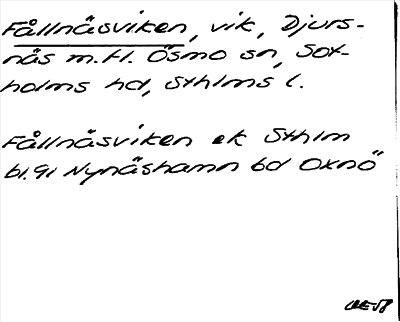 Fållnäsviken, vik, Djurs-
näs m.fl. Ösmo sn, Sot-
holms hd, Sthlms l.
Fållnäsviken ek Sthlm
bl. 9i Nynäshamn bd Oxnö